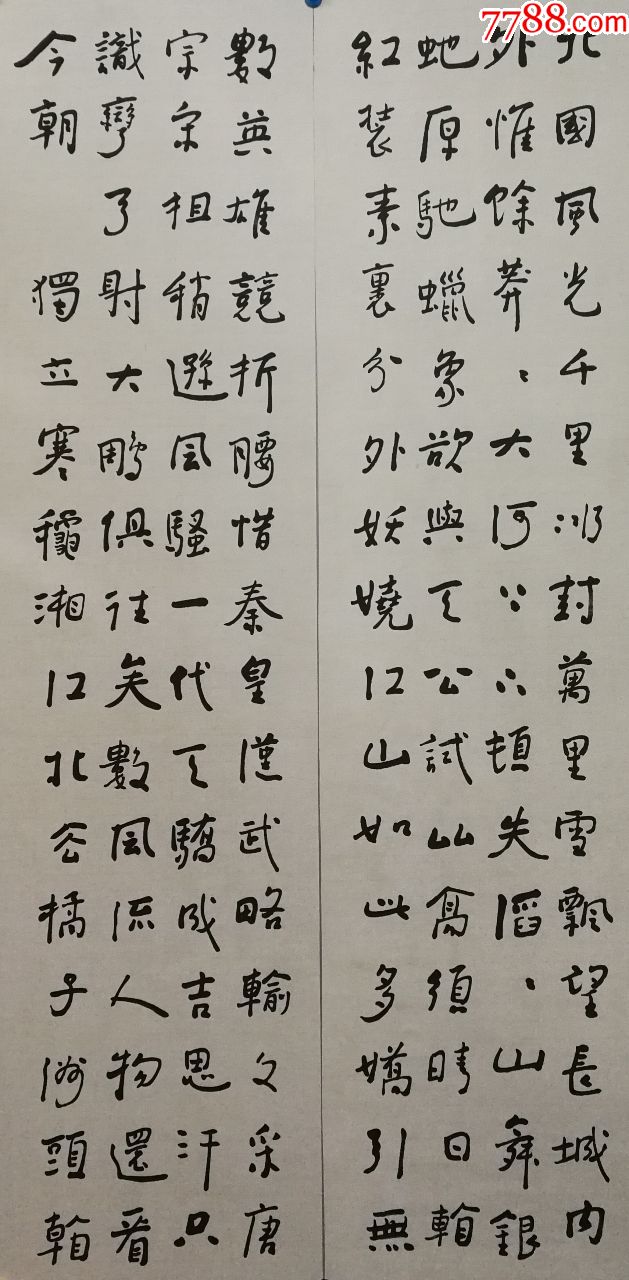 7788.com
北國風光千里冰封萬里雪飄望長城内
外惟餘莽〻大河上下頓失滔〻山舞銀
虵原馳蠟象欲與天公試比高須晴日看
紅裝素裹分外妖嬈江山如此多嬌引無
數英雄競折腰惜秦皇漢武略輸文采唐
宗宋祖稍遜風騷一代天驕成吉思汗只
識彎弓射大鵰俱往矣數風流人物還看
今朝 獨立寒龝湘江北去橘子洲頭看